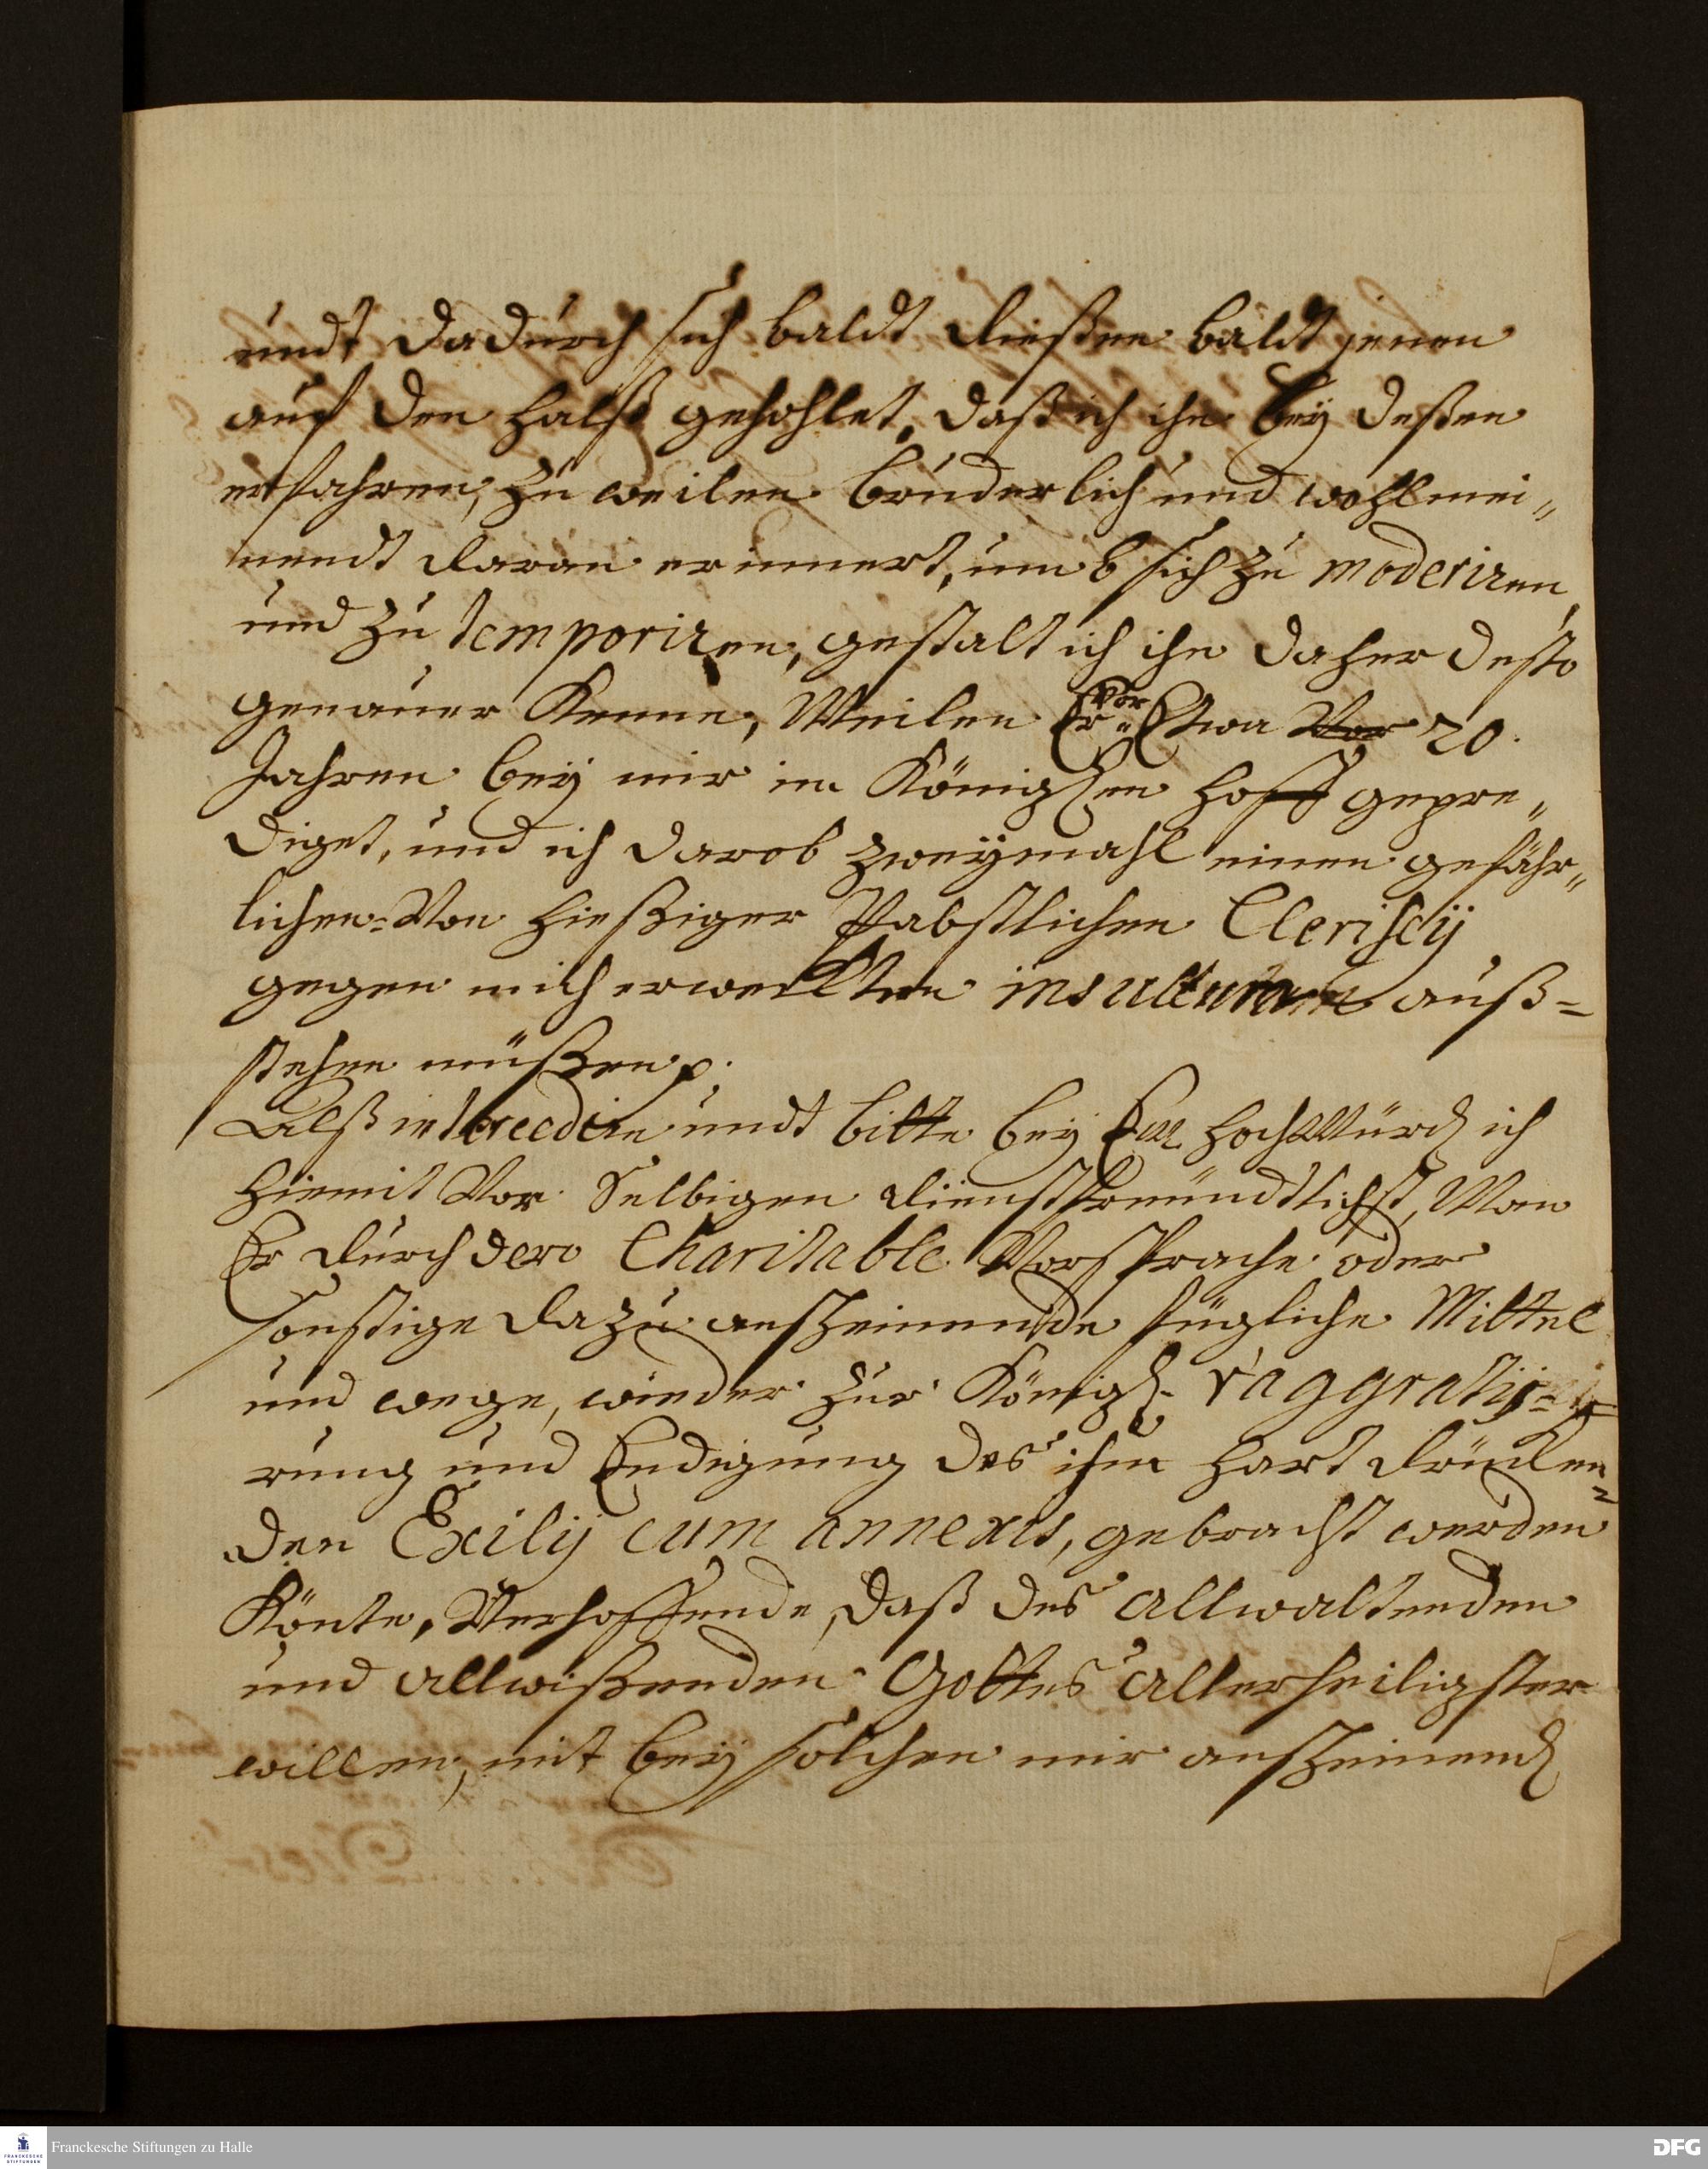 undt dadurch sich baldt dießen baldt jenen
auf den Halß gehohlet, daß ich ihn bey deßen
erfahren, zu weilen brüderlich und wohlmei„
nendt daran erinnert, umb sich zu moderiren,
und zu temporiren, gestalt ich ihn daher desto
genauer Kenne, Weilen Er vor Etwa Vor 20.
Jahren bey mir im Königschen Hoff gepre„
diget, und ich darob zweymahl einen gefähr„
lichen-Von hießiger Pabstlichen Clerisey
gegen mich erweckten auß=
stehen müßen p.
Alß intercedire undt bitte bey Ew. HochWürd ich
hiemit Vor Selbigen dienstfreundtlichst, Wan
Er durch dero Charitable Vorsprache oder
sonstige dazu anscheinende fügliche Mittel
und wege, wieder zur Königl. raggratij=
rung und Endigung des ihm hart drücken=
den Exilij cum annexis, gebracht werden
Könte, Verhoffende, daß des Allwaltenden
und Allwißenden Gottes Allerheiligster
willen, mit bey solchen mir anscheinend
Franckesche Stiftungen zu Halle
FRANCKESCHE STIFTUNGEN
DFG